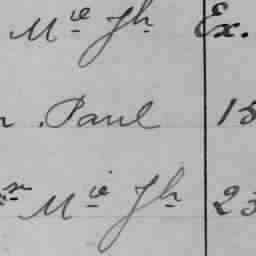 Mie Jh Ex.
n . Paul 15
an Mie Jh 23